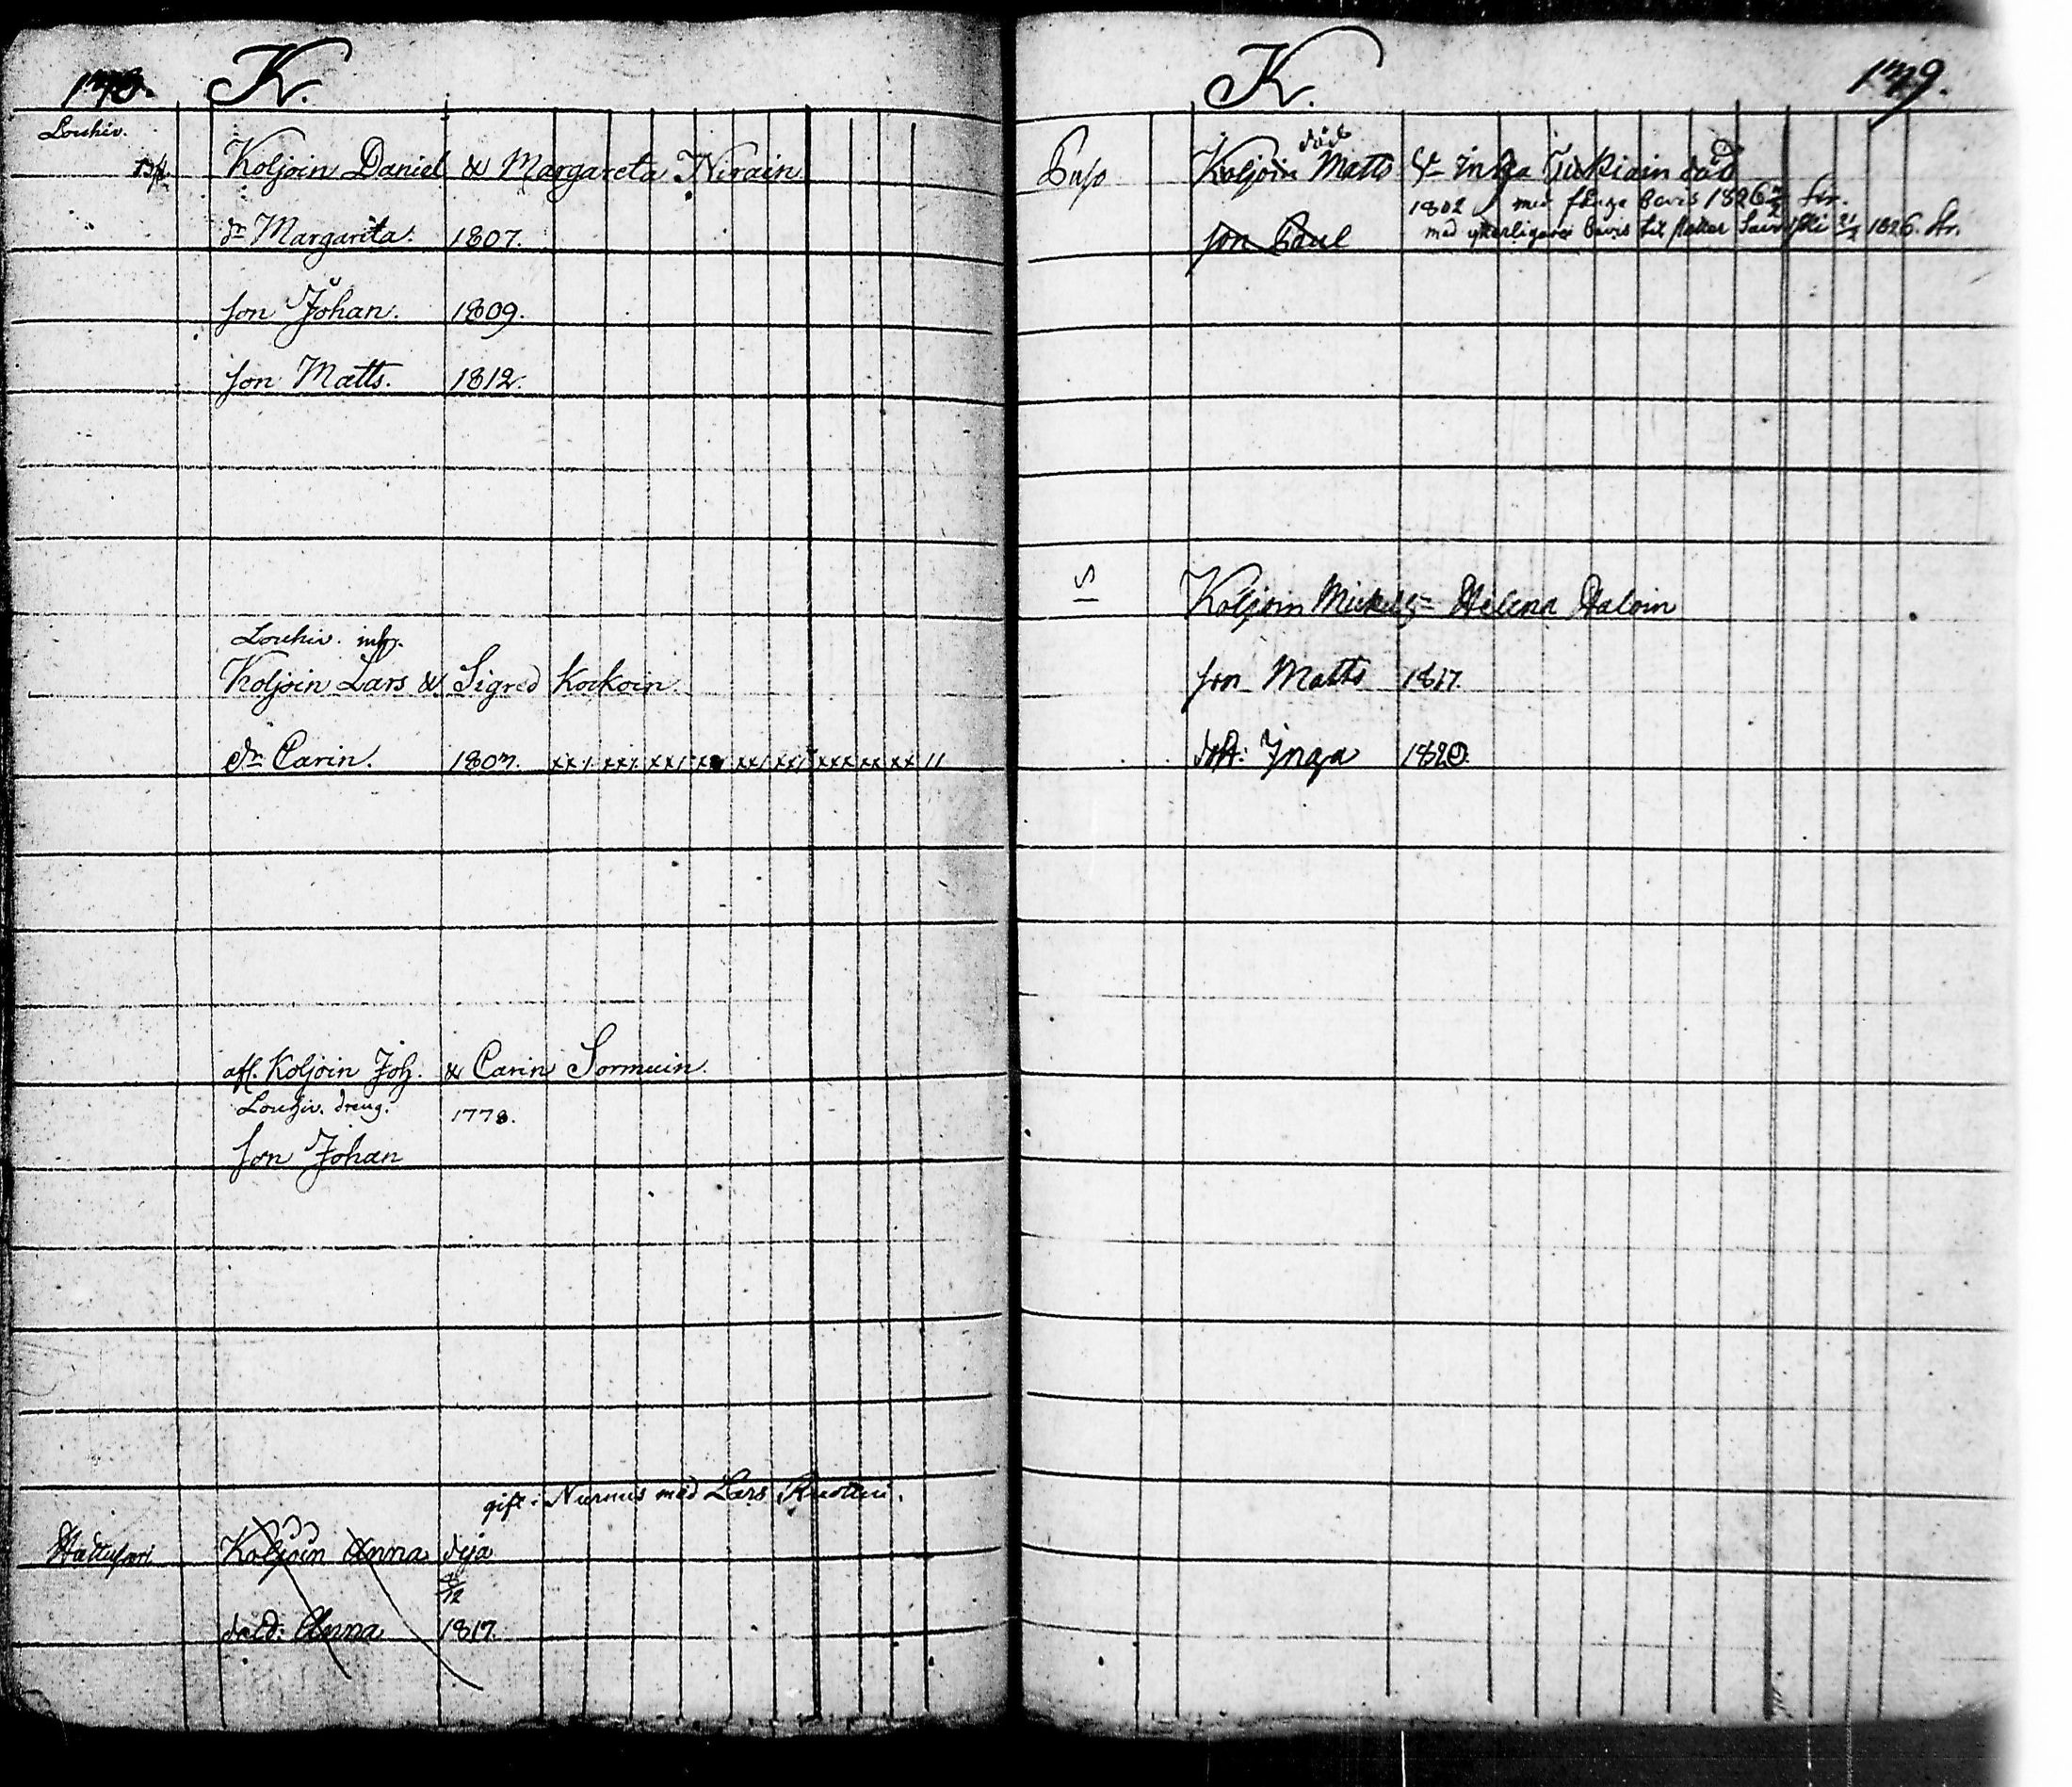 178. K.
Louhiv.
Koljoin Daniel & Margareta Nirain
dr Margarita. 1807.
son Johan. 1809.
son Matts. 1812.
Louhiv. inh.
Koljoin Lars & Sigred Kockoin.
dr Carin. 1807. xx xxx xx xx xx xx xxx xx xx 11
afl. Koljoin Joh. & Carin Sormuin.
Louhiv. dreng. 1778.
son Johan
gift i Nurmis med Lars
Hattusari Koljoin Anna deja
5/12
Anna 1817.
K. 179.
död
Koljoin Matts & Inga Turkiain död
1802 med bevis 1826 2
son Paul med ytterligare bevis til 21/2 1826.
15 Koljoin Mickel & Helena Haloin
son Matts 1817.
dott: Inga 1820.